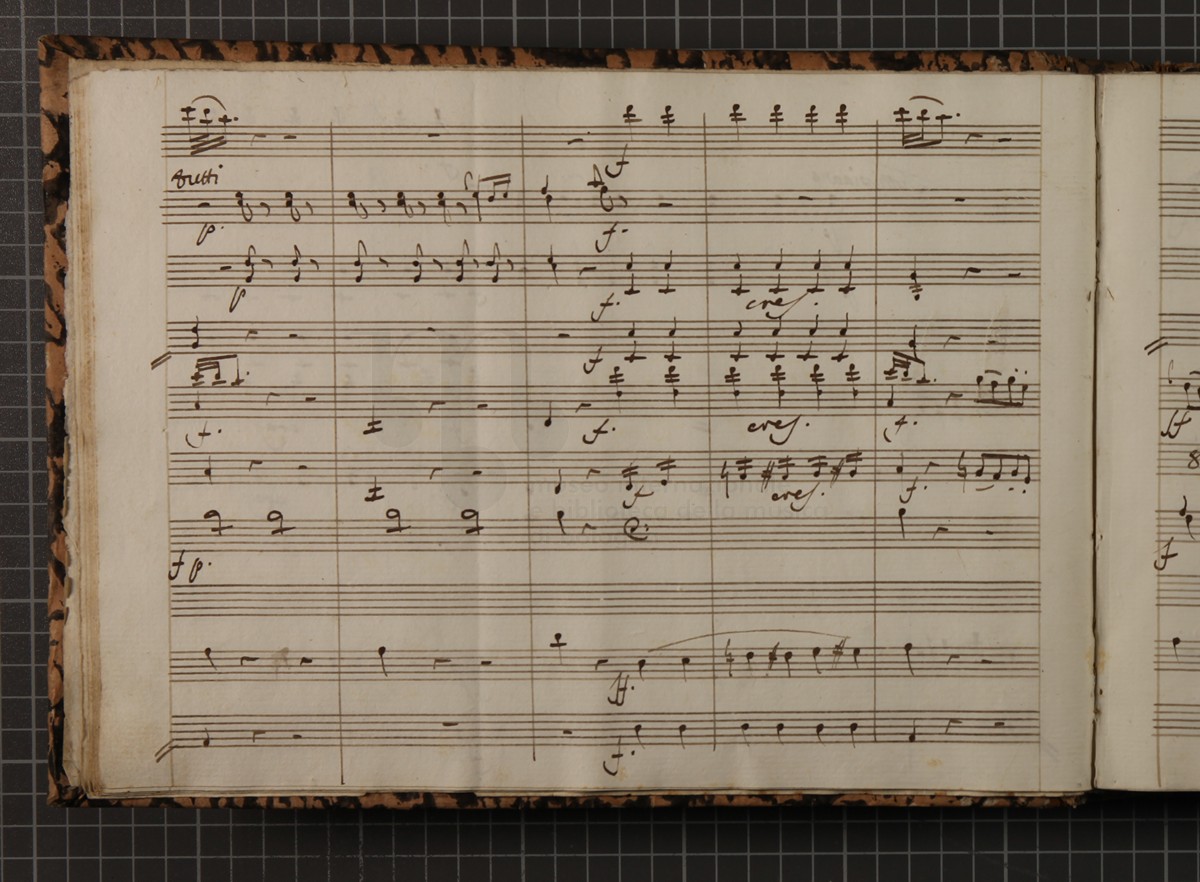 Tutti
f
p.
f.
p
f.
cres.
f
f.
f.
cres.
f.
f
cres.
f.
museo internazionale
e biblioteca della musica
f p.
ff.
f.
ff
f